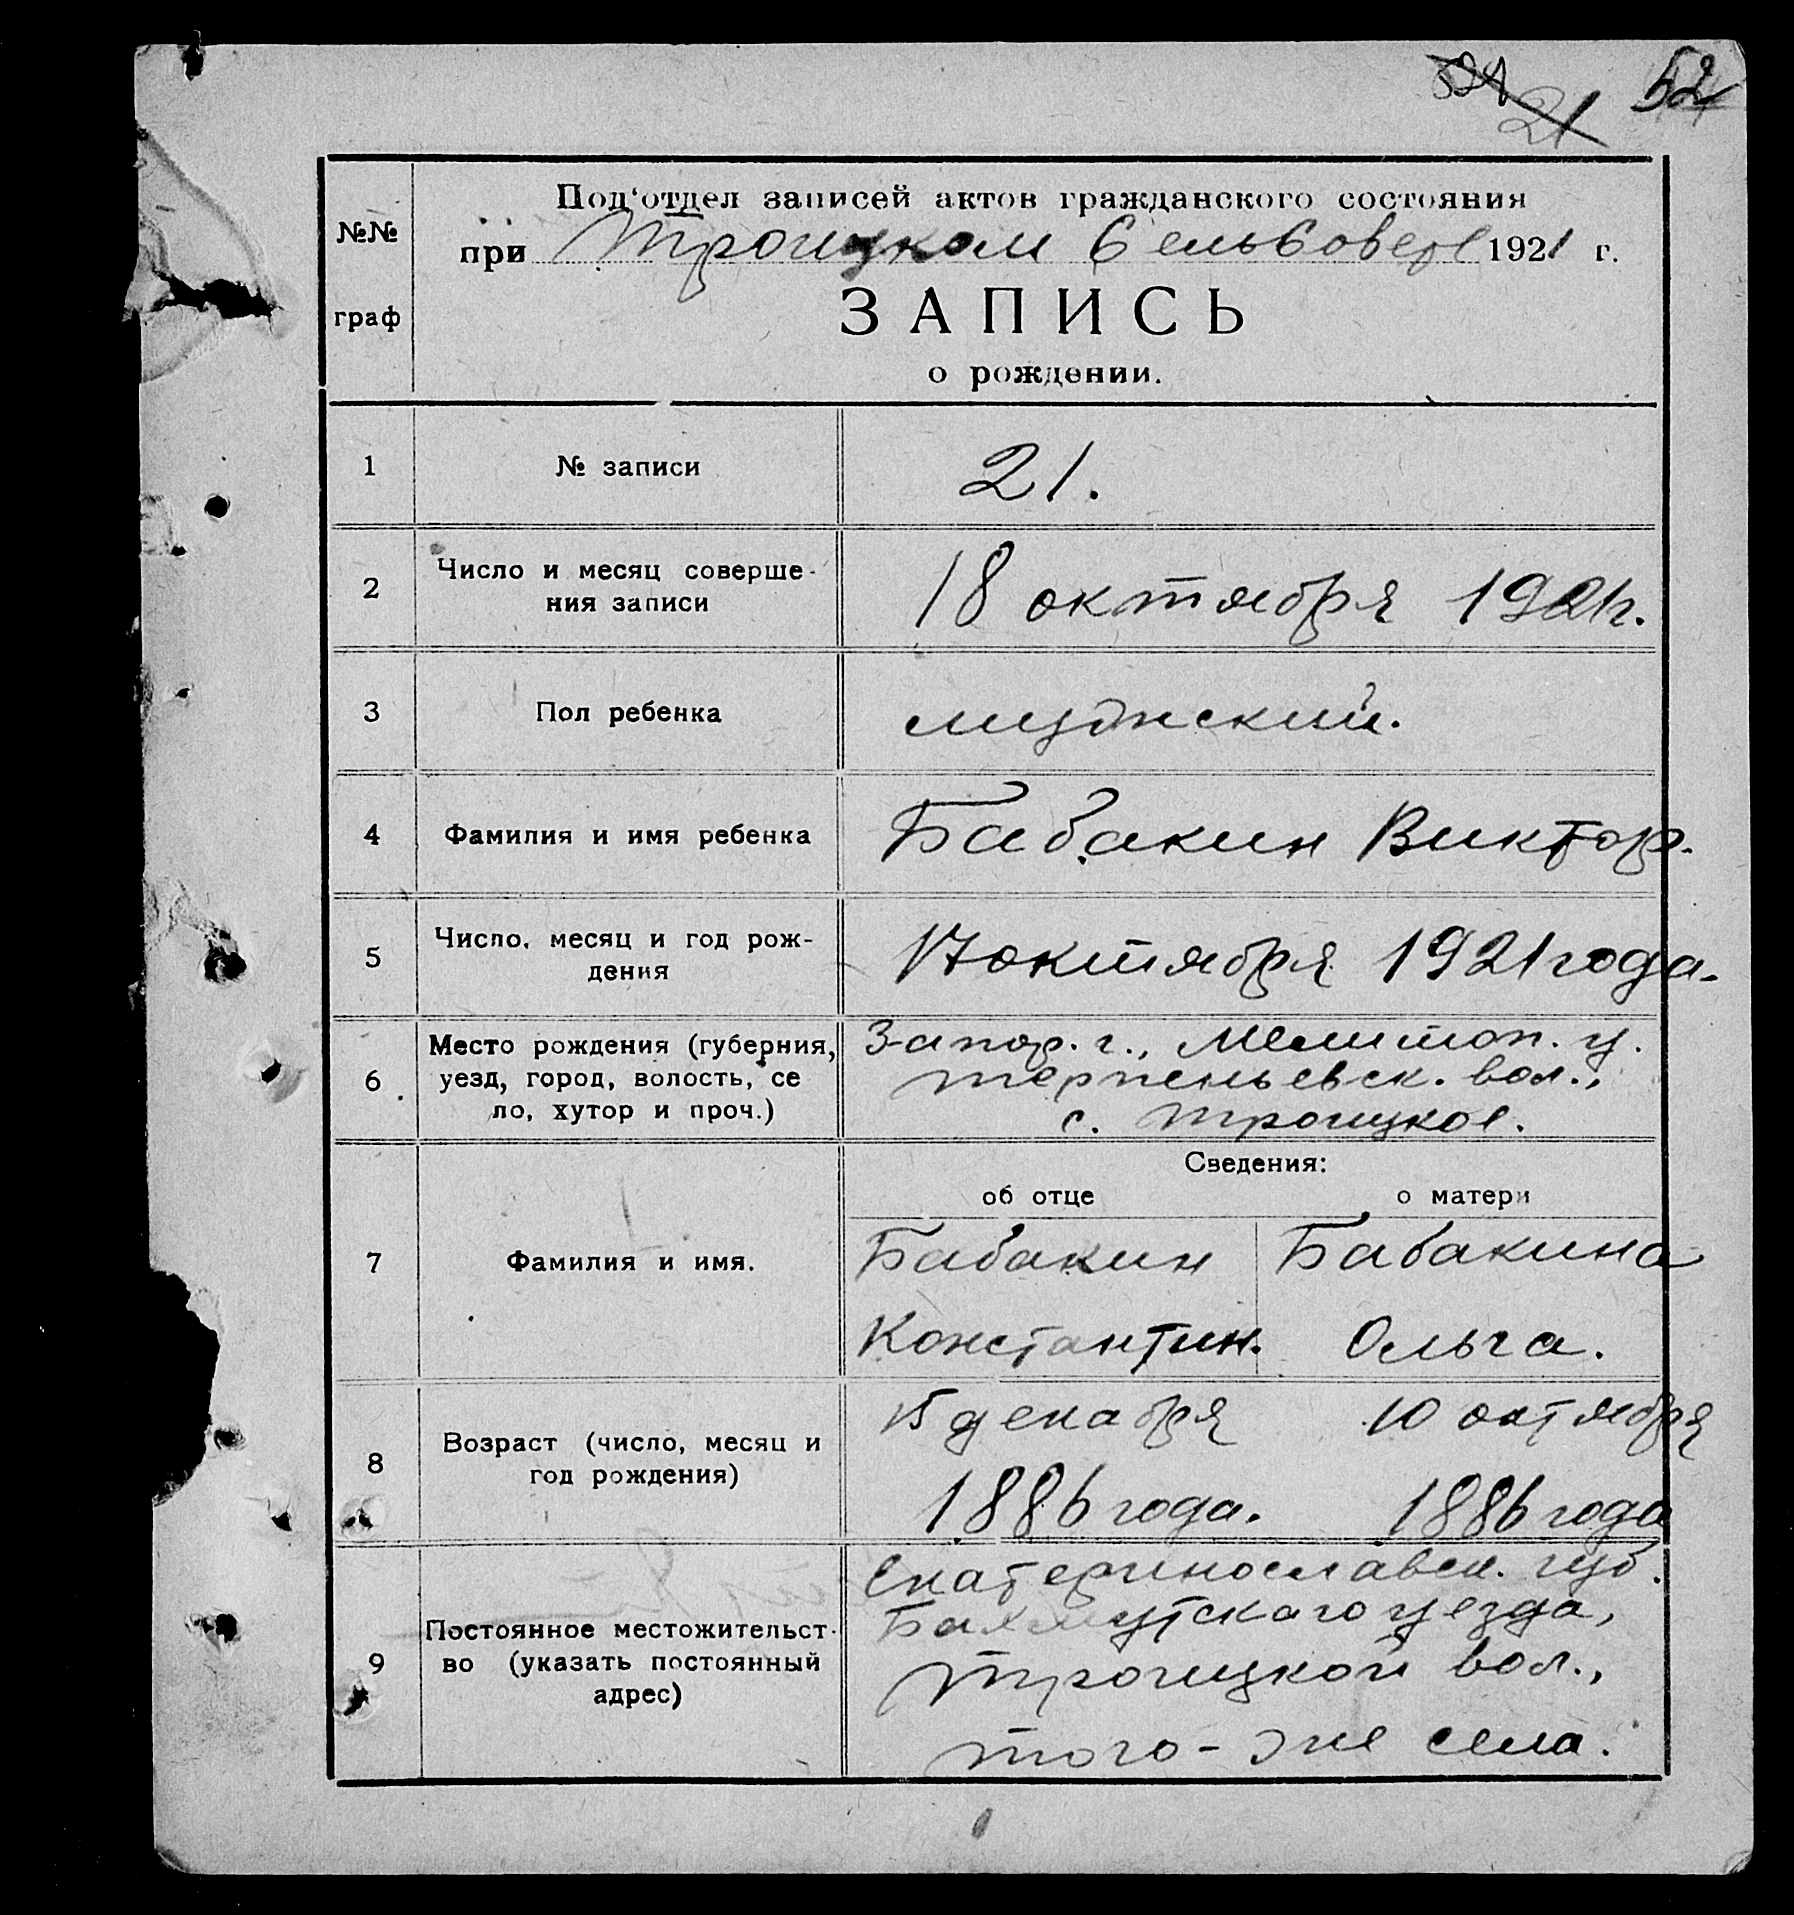 21
52
Под'отдел записей актов гражданского состояния
№№ при Троицком Сельсовете 1921 г.
граф ЗАПИСЬ
о рождении.
1 № записи 21.
2 Число и месяц соверше-
ния записи 18 октября 1921г.
3 Пол ребенка мужский.
4 Фамилия и имя ребенка Бабакин Виктор.
5 Число, месяц и год рож-
дения 17 октября 1921 года.
6 Место рождения (губерния, Запор. г., Мелитоп. у.
уезд, город, волость, се Терпеньевск. вол.,
ло, хутор и проч.) с. Троицкое.
Сведения:
об отце о матери
7 Фамилия и имя. Бабакин Бабакина
Константин. Ольга.
8 Возраст (число, месяц и 15 декабря 10 октября
год рождения) 1886 года. 1886 года
9 Постоянное местожительст- Екатеринославск. губ.
во (указать постоянный Бахмутскаго уезда,
адрес) Троицкой вол.,
того-же села.